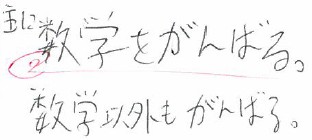 主に
数学をがんばる。
②
数学以外もがんばる。